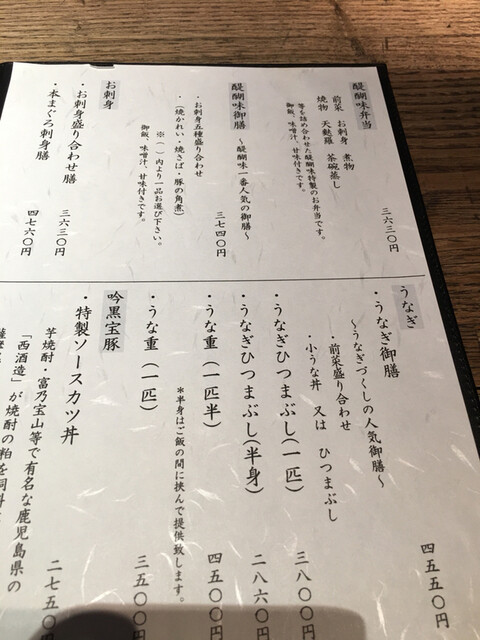 醍醐味弁当
前菜 お刺身 煮物
焼物 天麩羅 茶碗蒸し
等を詰め合わせた醍醐味特製のお弁当です。
御飯、味噌汁、甘味付きです。
三六三〇円
醍醐味御膳 ～醍醐味一番人気の御膳～
・お刺身五種盛り合わせ
・(焼かれい・焼さば・豚の角煮)
※( )内より一品お選び下さい。
御飯、味噌汁、甘味付きです。
三七四〇円
お刺身
・お刺身盛り合わせ膳
三六三〇円
・本まぐろ刺身膳
四七六〇円
うなぎ
・うなぎ御膳
～うなぎづくしの人気御膳～
・前菜盛り合わせ
・小うな丼 又は ひつまぶし
四五五〇円
・うなぎひつまぶし(一匹)
三八〇〇円
・うなぎひつまぶし(半身)
二八六〇円
・うな重(一匹半)
四五〇〇円
*半身はご飯の間に挟んで提供致します。
・うな重(一匹)
三五〇〇円
吟黒宝豚
・特製ソースカツ丼
二七五〇
芋焼酎・富乃宝山等で有名な鹿児島県の
「西酒造」が焼酎の粕を飼料に